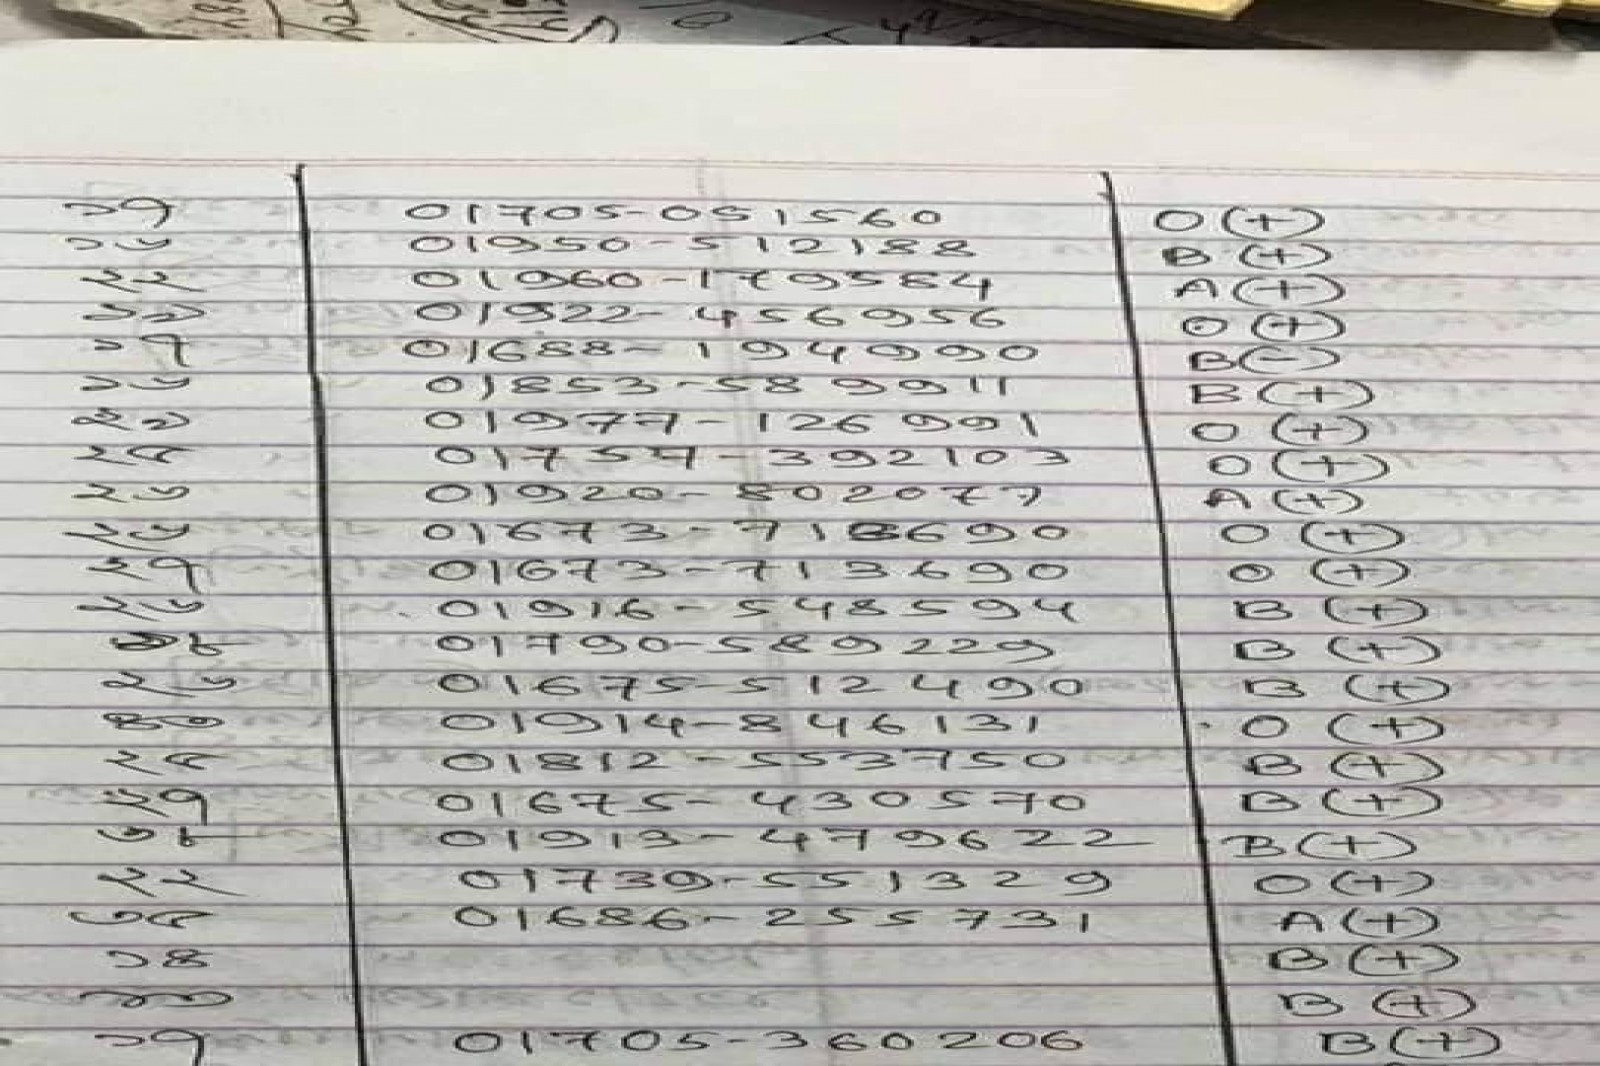 ১৭ 01705-051560 O(+)
১৬ 01950-512188 B(+)
২২ 01960-179584 A(+)
১৯ 01922-456956 O(+)
১৭ 01688-194990 B(-)
১৬ 01853-589911 B(+)
২৯ 01977-126991 O(+)
২৫ 01757-392103 O(+)
২৬ 01920-802077 A(+)
২৬ 01673-713690 O(+)
২৭ 01673-713690 O(+)
২৬ 01916-548594 B(+)
৩৮ 01790-589229 B(+)
২৬ 01675-512490 B(+)
৪০ 01914-846131 O(+)
২৫ 01812-553750 B(+)
২৭ 01675-430570 B(+)
৩৮ 01913-479622 B(+)
২২ 01739-551329 O(+)
৩৫ 01686-255731 A(+)
১৪ B(+)
৩০ B(+)
১৭ 01705-360206 B(+)